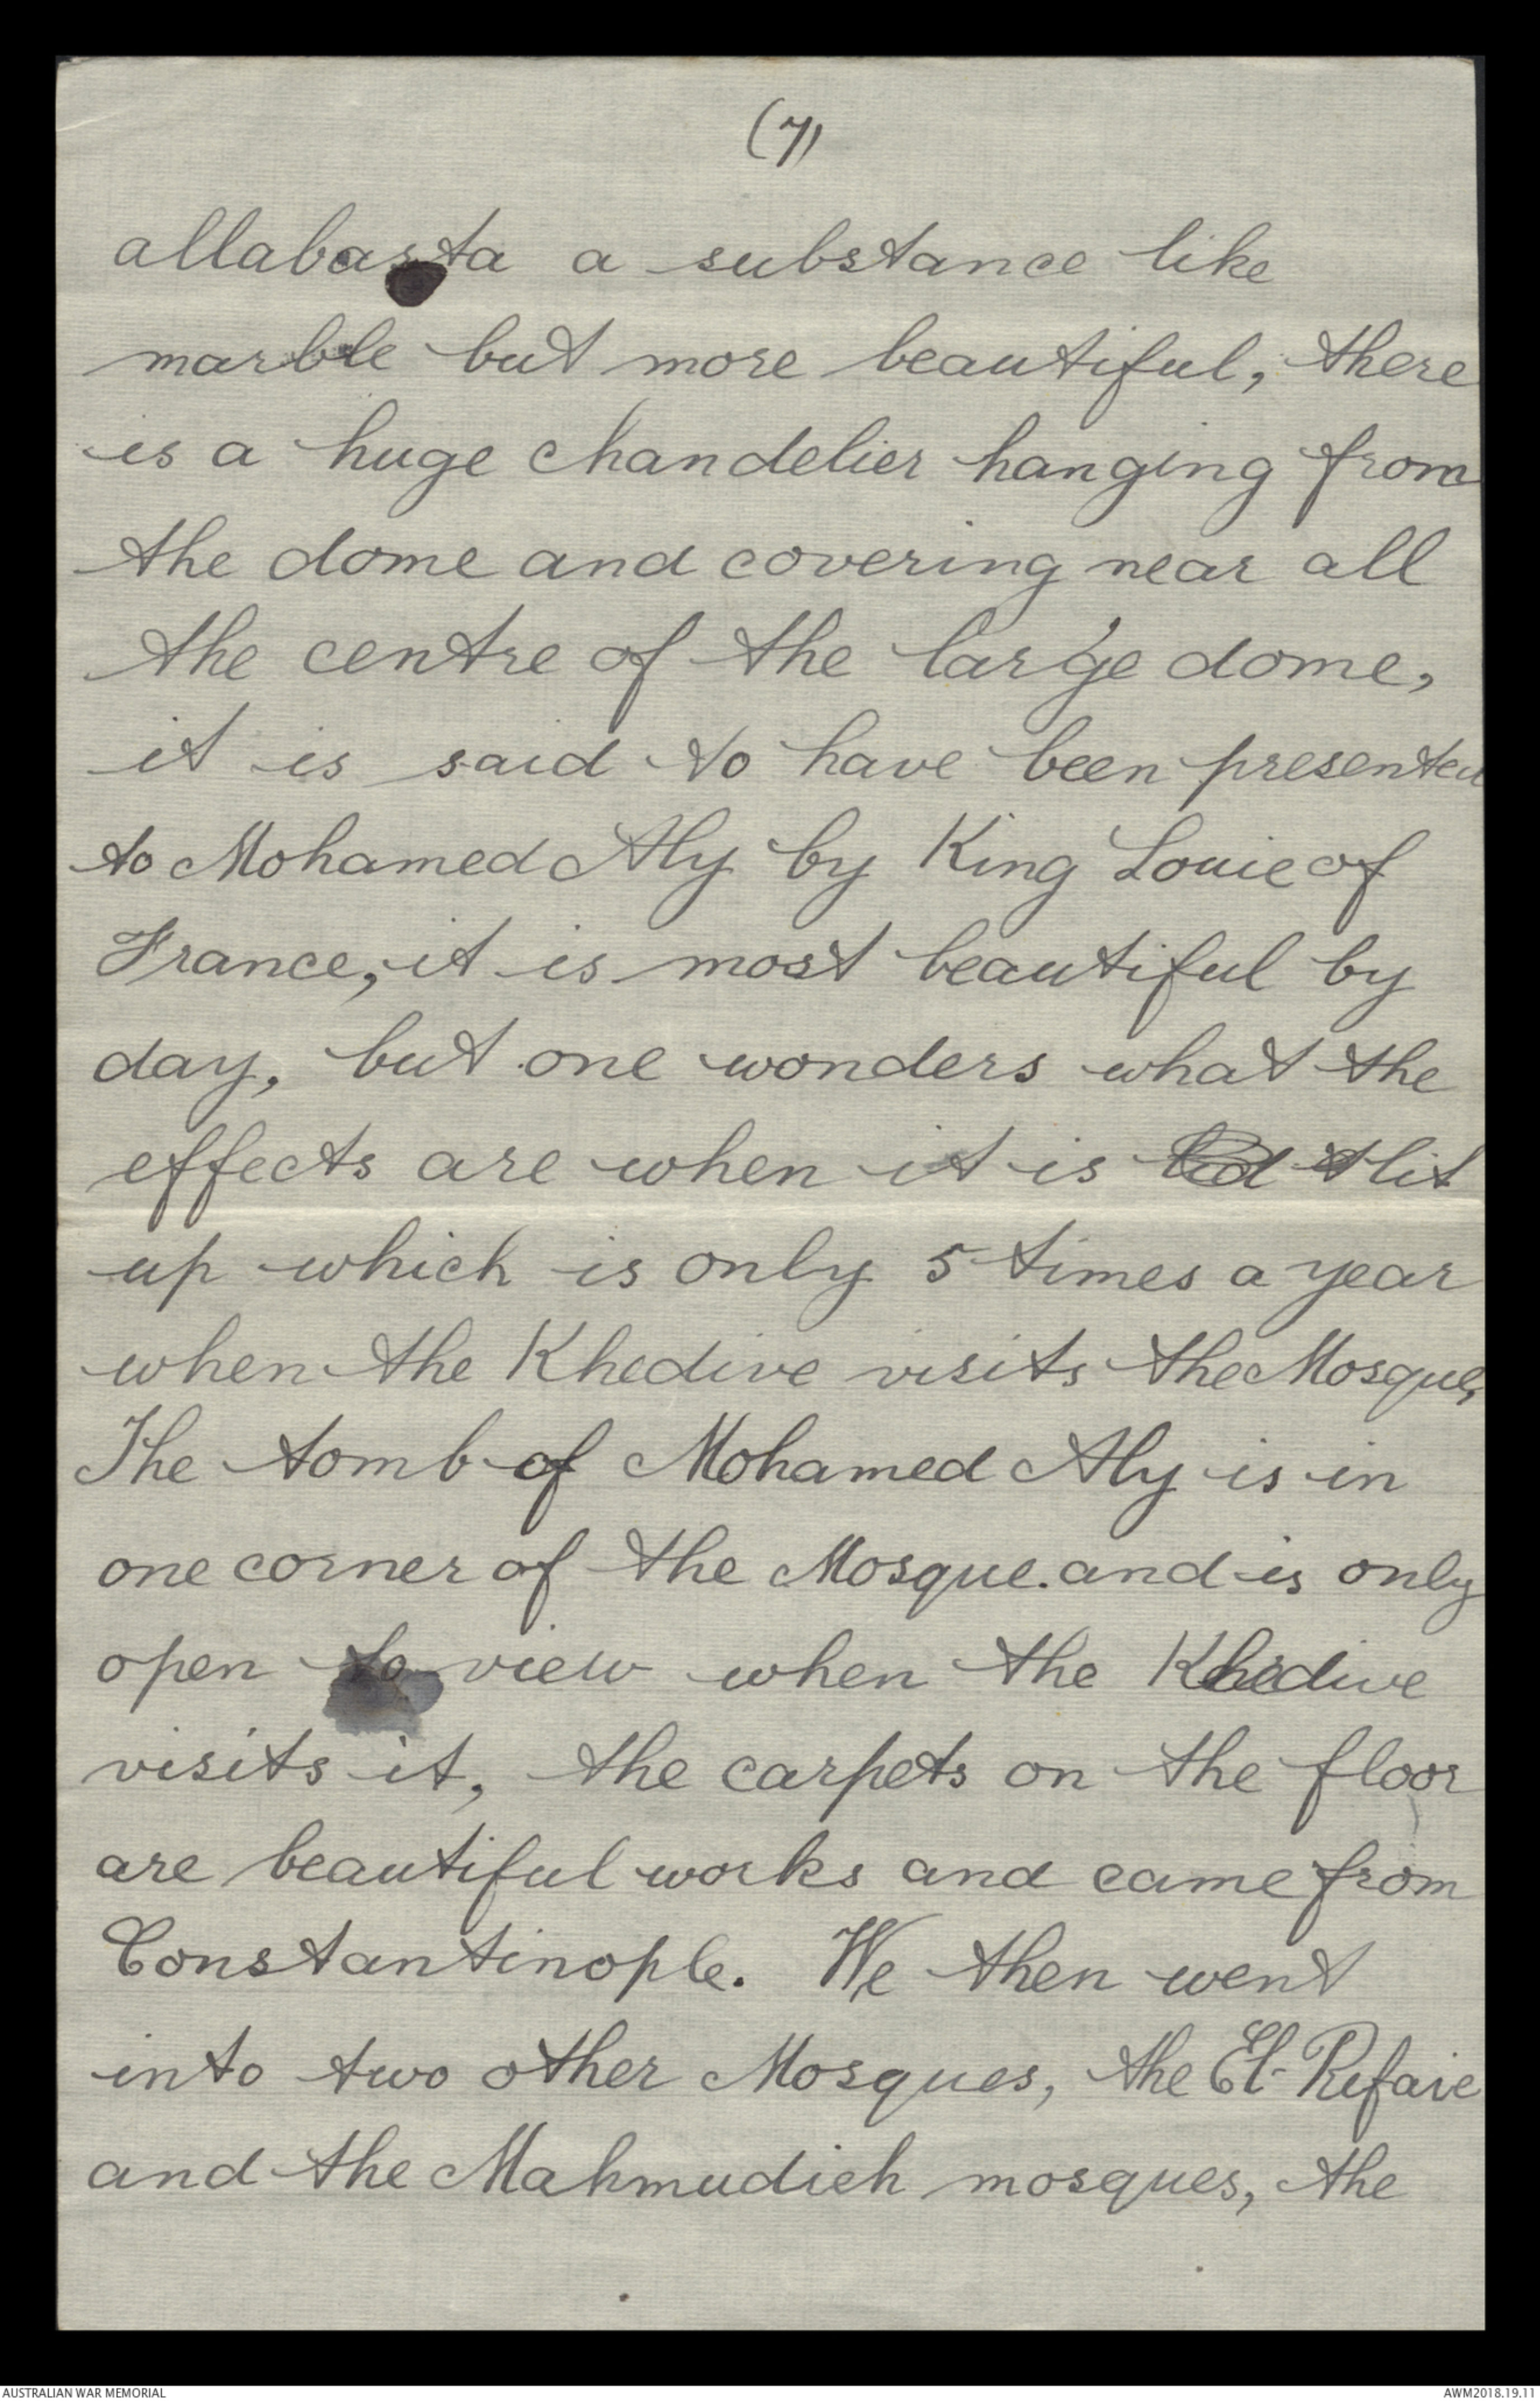 (7)
allabasta a substance like
marble but more beautiful, there
is a huge chandelier hanging from
the dome and covering near all
the centre of the large dome,
it is said to have been presented
to Mohamed Aly by King Louie of
France, it is most beautiful by
day, but one wonders what the
effects are when it is lit
up which is only 5 times a year
when the Khedive visits the Mosque,
The tomb of Mohamed Aly is in
one corner of the Mosque. and is only
open to view when the Khedive
visits it, the carpets on the floor
are beautiful works and came from
Constantinople. We then went
into two other Mosques, the El-Refaie
and the Mahmudieh mosques, the
AUSTRALIAN WAR MEMORIAL
AWM2018.19.11